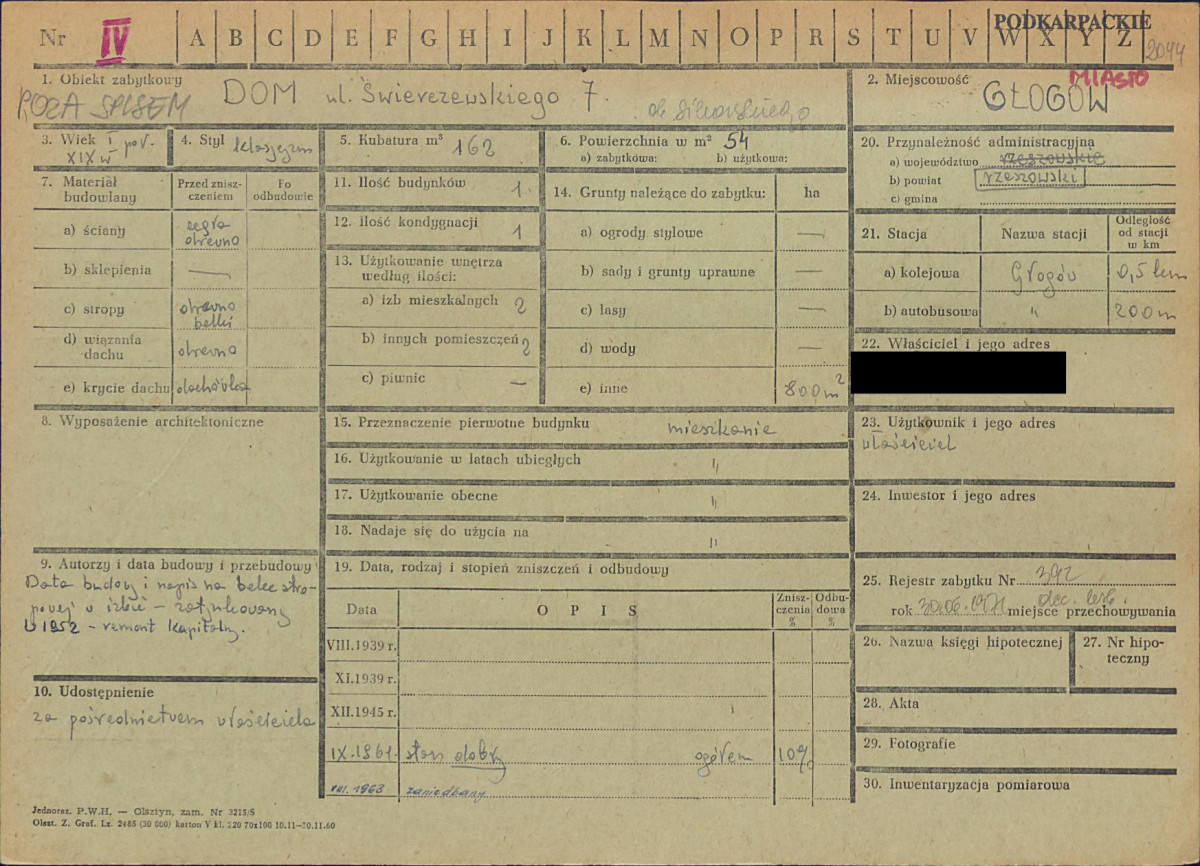 Nr IV A B C D E F G H I J K L M N O P R S T U V W X Y Z
PODKARPACKIE
2044
1. Obiekt zabytkowy
POZA SPISEM
DOM ul. Świerczewskiego 7.
ob. Sikorskiego
2. Miejscowość
MIASTO
GŁOGÓW
3. Wiek I poł. XIX w
4. Styl klasycyzm
5. Kubatura m³ 162
6. Powierzchnia w m² 54
a) zabytkowa: b) użytkowa:
7. Materiał budowlany
Przed zniszczeniem
Po odbudowie
a) ściany cegła drewno
b) sklepienia —
c) stropy drewno belki
d) wiązania dachu drewno
e) krycie dachu dachówka
11. Ilość budynków 1.
12. Ilość kondygnacji 1
13. Użytkowanie wnętrza według ilości:
a) izb mieszkalnych 2
b) innych pomieszczeń 2
c) piwnic —
14. Grunty należące do zabytku: ha
a) ogrody stylowe —
b) sady i grunty uprawne —
c) lasy —
d) wody —
e) inne 800m²
20. Przynależność administracyjna
a) województwo rzeszowskie
b) powiat rzeszowski
c) gmina
21. Stacja
Nazwa stacji
Odległość od stacji w km
a) kolejowa Głogów 0,5 km
b) autobusowa " 200m
22. Właściciel i jego adres
8. Wyposażenie architektoniczne
15. Przeznaczenie pierwotne budynku mieszkanie
16. Użytkowanie w latach ubiegłych "
17. Użytkowanie obecne "
18. Nadaje się do użycia na "
23. Użytkownik i jego adres
właściciel
24. Inwestor i jego adres
9. Autorzy i data budowy i przebudowy
Data budowy i napis na belce stro-
powej w izbie – zatynkowany
W 1952 - remont kapitalny.
10. Udostępnienie
za pośrednictwem właściciela
19. Data, rodzaj i stopień zniszczeń i odbudowy
Data OPIS Zniszczenia % Odbudowa %
VIII.1939 r.
XI.1939 r.
XII.1945 r.
IX.1961. stan dobry ogółem 10%
VIII. 1963 zaniedbany
25. Rejestr zabytku Nr 392
rok 30.06.1971 miejsce przechowywania
26. Nazwa księgi hipotecznej
27. Nr hipoteczny
28. Akta
29. Fotografie
30. Inwentaryzacja pomiarowa
Jednoraz. P.W.H. — Olsztyn, zam. Nr 3215/S
Olszt. Z. Graf. Lz. 2485 (30 000) karton V kl. 220 70x100 10.11—30.11.60